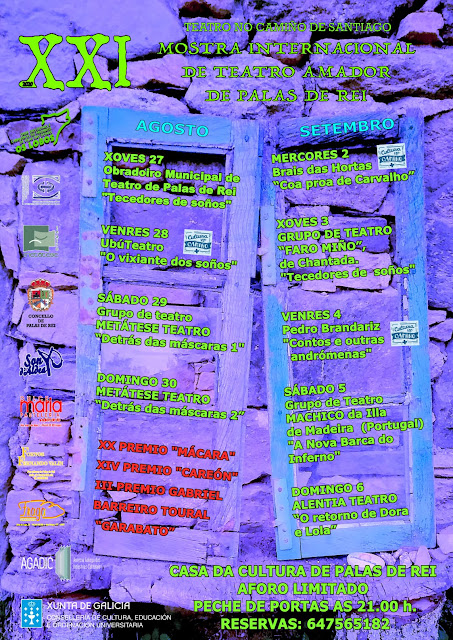 XXI
TEATRO NO CAMIÑO DE SANTIAGO
MOSTRA INTERNACIONAL
DE TEATRO AMADOR
DE PALAS DE REI
AGOSTO
XOVES 27
Obradoiro Municipal de
Teatro de Palas de Rei
"Tecedores de soños"
VENRES 28
UbúTeatro
"O vixiante dos soños"
SÁBADO 29
Grupo de teatro
METÁTESE TEATRO
"Detrás das máscaras 1"
DOMINGO 30
METÁTESE TEATRO
"Detrás das máscaras 2"
XX PREMIO "MÁCARA"
XIV PREMIO "CAREÓN"
III PREMIO GABRIEL
BARREIRO TOURAL
"GARABATO"
SETEMBRO
MERCORES 2
Brais das Hortas
"Coa proa de Carvalho"
XOVES 3
GRUPO DE TEATRO
"FARO MIÑO"
de Chantada.
"Tecedores de soños"
VENRES 4
Pedro Brandariz
"Contos e outras
andrómenas"
SÁBADO 5
Grupo de Teatro
MACHICO da Illa
de Madeira (Portugal)
"A Nova Barca do
Inferno"
DOMINGO 6
ALENTIA TEATRO
"O retorno de Dora
e Lola"
CONCELLO
DE PALAS DE REI
maría
AGADIC
XUNTA DE GALICIA
CONSELLERÍA DE CULTURA, EDUCACIÓN
E ORDENACIÓN UNIVERSITARIA
CASA DA CULTURA DE PALAS DE REI
AFORO LIMITADO
PECHE DE PORTAS AS 21.00 h.
RESERVAS: 647565182